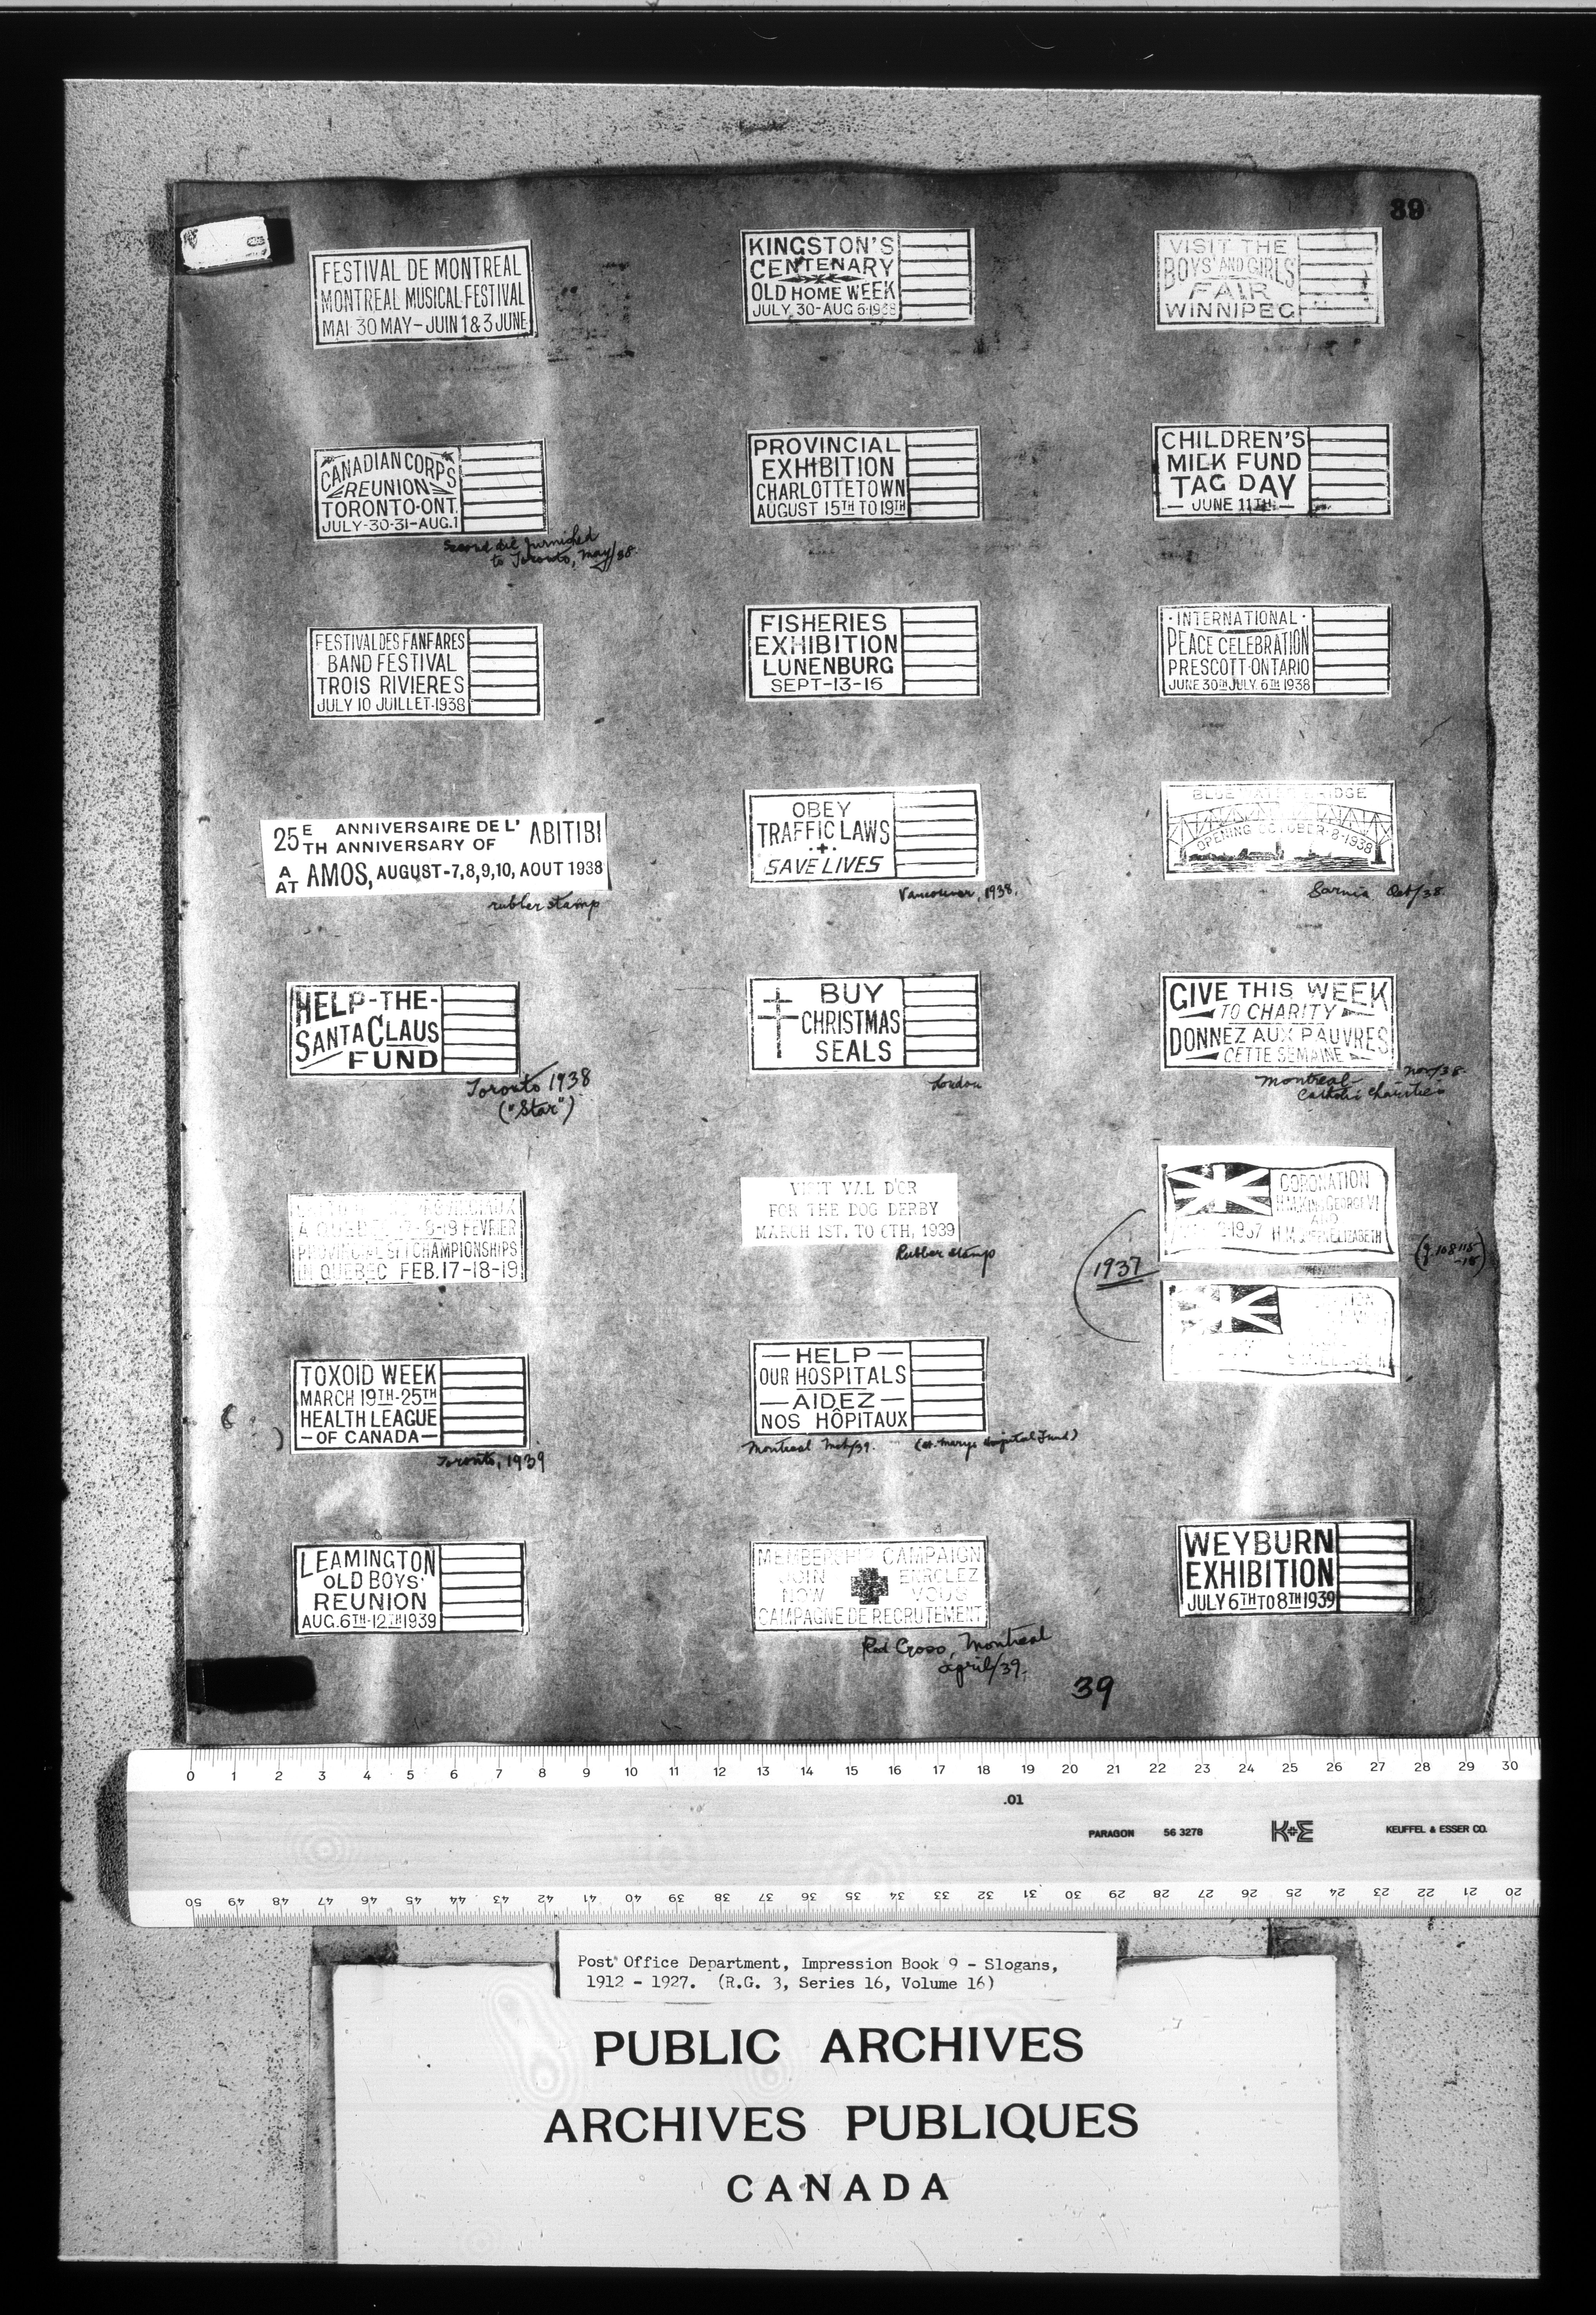 39
FESTIVAL DE MONTREAL
MONTREAL MUSICAL FESTIVAL
MAI 30 MAY-JUIN 1 & 3 JUNE
KINGSTON'S
CENTENARY
OLD HOME WEEK
JULY 30-AUG 6-1938
VISIT THE
BOYS' AND GIRLS'
FAIR
WINNIPEG
CANADIAN CORPS
REUNION
TORONTO-ONT.
JULY-30-31-AUG.1
Second die furnished
to Toronto, May/38.
PROVINCIAL
EXHIBITION
CHARLOTTETOWN
AUGUST 15TH TO 19TH
CHILDREN'S
MILK FUND
TAG DAY
- JUNE 11TH. -
FESTIVAL DES FANFARES
BAND FESTIVAL
TROIS RIVIERES
JULY 10 JUILLET-1938
FISHERIES
EXHIBITION
LUNENBURG
SEPT-13-16
· INTERNATIONAL ·
PEACE CELEBRATION
PRESCOTT-ONTARIO
JUNE 30TH JULY. 6TH 1938
25E ANNIVERSAIRE DE L' ABITIBI
TH ANNIVERSARY OF
A
AT AMOS, AUGUST-7,8,9,10, AOUT 1938
rubber stamp
OBEY
TRAFFIC LAWS
SAVE LIVES
Vancouver, 1938.
BLUE WATER BRIDGE
OPENING OCTOBER-8-1938
Sarnia Oct/38.
HELP-THE-
SANTA CLAUS
FUND
Toronto 1938
("Star")
BUY
CHRISTMAS
SEALS
London
GIVE THIS WEEK
TO CHARITY
DONNEZ AUX PAUVRES
CETTE SEMAINE
Montreal Nov/38.
Catholic Charities
FEVRIER
PROVINCIAL SKI CHAMPIONSHIPS
IN QUEBEC FEB.17-18-19
VISIT VAL D'OR
FOR THE DOG DERBY
MARCH 1ST. TO 6TH, 1939
Rubber stamp
CORONATION
H.M. KING GEORGE VI
AND
1937 H.M. QUEEN ELIZABETH
1937
TOXOID WEEK
MARCH 19TH-25TH
HEALTH LEAGUE
-OF CANADA-
Toronto, 1939
- HELP -
OUR HOSPITALS
- AIDEZ -
NOS HÔPITAUX
Montreal Mch/39. (St. Marys Hospital Fund)
LEAMINGTON
OLD BOYS'
REUNION
AUG. 6TH-12TH 1939
MEMBERSHIP CAMPAIGN
JOIN ENROLEZ
NOW VOUS
CAMPAGNE DE RECRUTEMENT
Red Cross, Montreal
April/39.
WEYBURN
EXHIBITION
JULY 6TH TO 8TH 1939
39
0 1 2 3 4 5 6 7 8 9 10 11 12 13 14 15 16 17 18 19 20 21 22 23 24 25 26 27 28 29 30
.01
PARAGON 56 3278 K+E KEUFFEL & ESSER CO.
50 49 48 47 46 45 44 43 42 41 40 39 38 37 36 35 34 33 32 31 30 29 28 27 26 25 24 23 22 21 20
Post Office Department, Impression Book 9 - Slogans,
1912 - 1927. (R.G. 3, Series 16, Volume 16)
PUBLIC ARCHIVES
ARCHIVES PUBLIQUES
CANADA